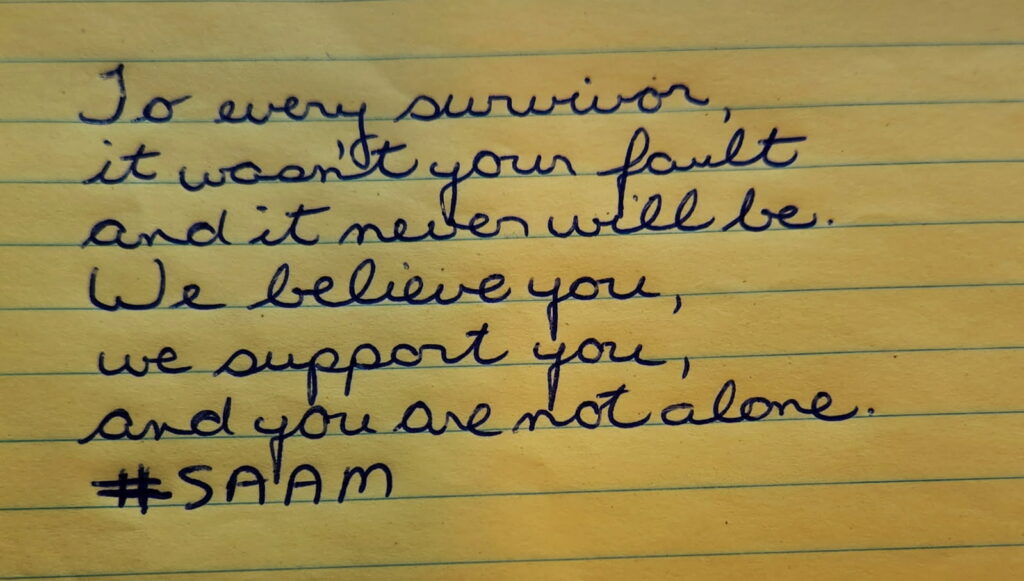 To every survivor,
it wasn't your fault
and it never will be.
We believe you,
we support you,
and you are not alone.
#SAAM